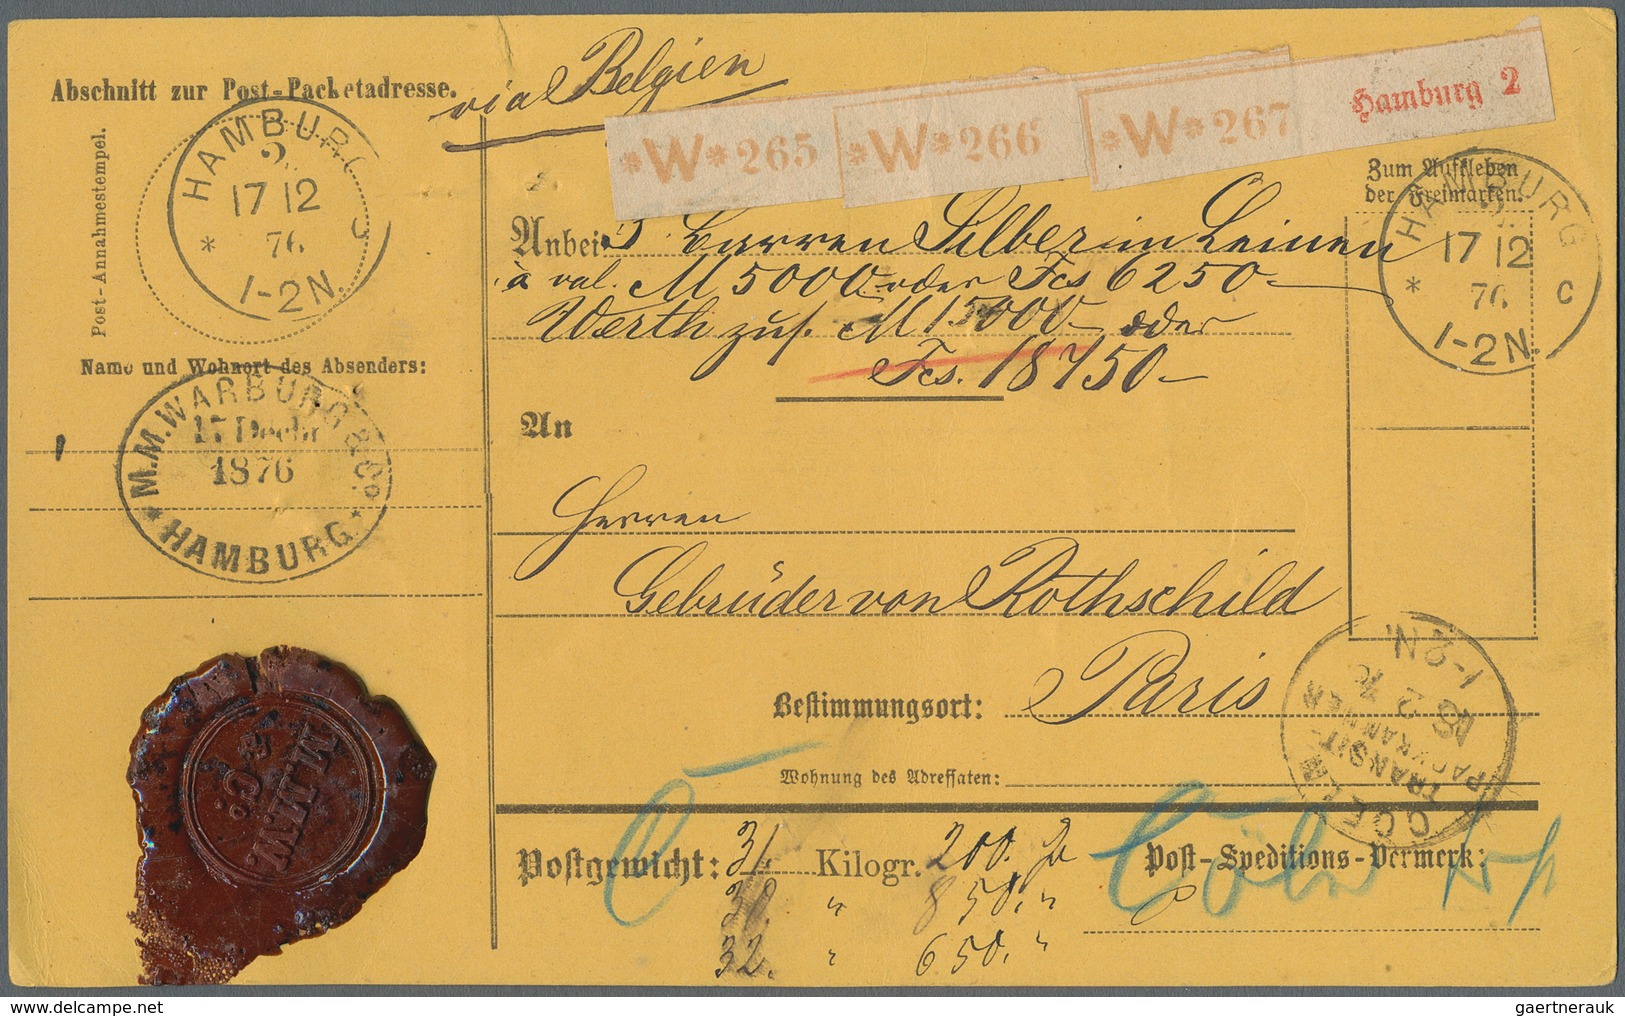 Abschnitt zur Post-Packetadresse.
Post-Annahmestempel.
HAMBURG
2
17 12
76
* C
1-2N.
Name und Wohnort des Absenders:
M.M.WARBURG & Co
17 Decbr
1876
* HAMBURG *
M.M.W.
& Co:
via Belgien
*W*265
*W*266
*W*267
Hamburg 2
Zum Aufkleben
der Freimarken.
HAMBURG
2
17 12
76
* C
1-2N.
Anbei 3 Barren Silber in Leinen
à val. M 5000 oder Fcs 6250-
Werth zus. M 15000- oder
Fcs. 18750-
An
Herren
Gebrüder von Rothschild
Bestimmungsort: Paris
Wohnung des Adressaten:
COELN
TRANSIT-
PACKKAMMER
18 12 76
1-2N.
Postgewicht: 31. Kilogr. 200. gr
30. " 850. "
32. " 650. "
Post-Speditions-Vermerk:
Cöln
gaertnerauk